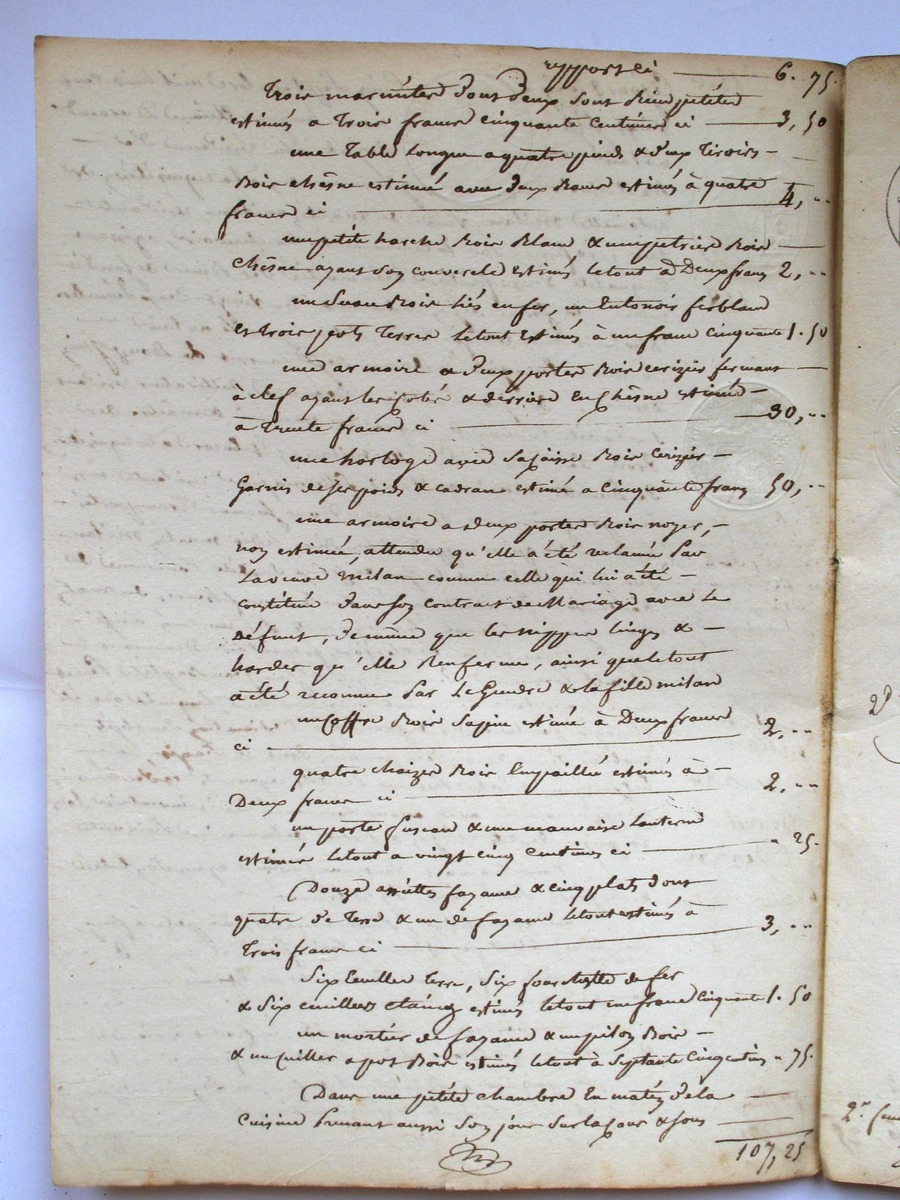 rapport ci 6. 75.
Trois marmites dont deux sont bien petites
estimés a Trois francs cinquante Centimes ci 3, 50
une Table Longue a quatre pieds & deux Tiroirs
Bois chêsne estimée avec deux Bancs estimés à quatre 4, "
francs ci
une petite harche Bois Blanc & un petrier Bois
Chêsne ayant son couvercle estimés le tout à Deux francs 2, "
un Seau Bois liés en fer, un Entonoir ferblanc
et trois pots Terres le tout Estimés à un franc Cinquante 1. 50
une armoire a deux portes Bois cerizier fermant
à clef ayant les cotés & derrière En Chêsne estimé
à Trente francs ci 30, "
une horloge avec sa caisse Bois Cerizier
Garnis de ses poids & cadran estimé a Cinquante francs 50, "
une armoire a deux portes Bois noyer,
non estimée, attendu qu'elle a été reclamée Par
La veuve Milan comme celle qui lui a été
constituée dans son contract de Mariage avec Le
Défunt, de même que les nippes linges &
hardes qu'elle Renferme, ainsi que le tout
a été reconnu Par Le Gendre & la fille Milan
un Coffre Bois Sapin estimé à Deux francs
ci 2, "
quatre chaizes Bois Empaillées estimés à
Deux francs ci 2, "
un porte fuseau & une mauvaise Lanterne
estimés le tout a vingt cinq Centimes ci " 25.
Douze assiettes fayance & cinq plats dont
quatre de Terre & un de fayance le tout estimés à
Trois francs ci 3, "
Six Ecuelles terre, Six fourchette de fer
& Six cuilleres etaing estimés le tout un franc Cinquante 1. 50
un mortier de fayance & un pilon Bois
& un Cuiller a pot Bois estimés le tout à Septante Cinq centimes " 75.
Dans une petite chambre En de la
Cuisine Prenant aussi Son jour Sur la Cour & Sous
107, 25